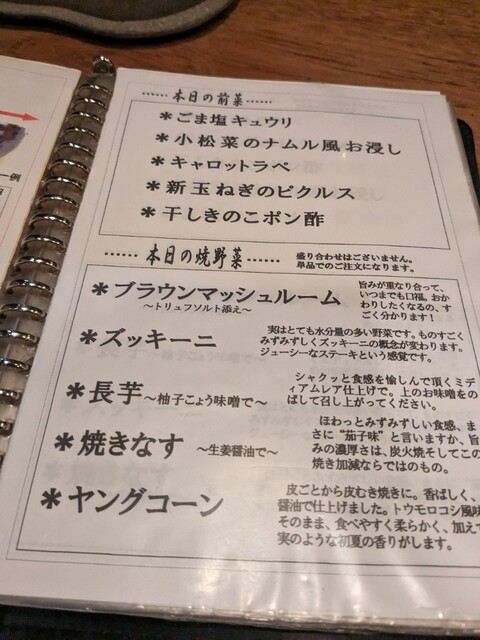 一例
……本日の前菜……
＊ごま塩キュウリ
＊小松菜のナムル風お浸し
＊キャロットラペ
＊新玉ねぎのピクルス
＊干しきのこポン酢
……本日の焼野菜……
盛り合わせはございません。
単品でのご注文になります。
＊ブラウンマッシュルーム
～トリュフソルト添え～
旨みが重なり合って、
いつまでも口福。おか
わりしたくなるの、す
ごく分かります！
＊ズッキーニ
実はとても水分量の多い野菜です。ものすごく
みずみずしくズッキーニの概念が変わります。
ジューシーなステーキという感覚です。
＊長芋～柚子こょう味噌で～
シャクッと食感を愉しんで頂くミデ
ィアムレア仕上げで。上のお味噌をの
ばして召し上がってください。
＊焼きなす ～生姜醤油で～
ほわっとみずみずしい食感、ま
さに“茄子味”と言いますか、旨
みの濃厚さは、炭火焼そしてこの
焼き加減ならではのもの。
＊ヤングコーン
皮ごとから皮むき焼きに。香ばしく、
醤油で仕上げました。トウモロコシ風味
そのまま、食べやすく柔らかく、加えて
実のような初夏の香りがします。